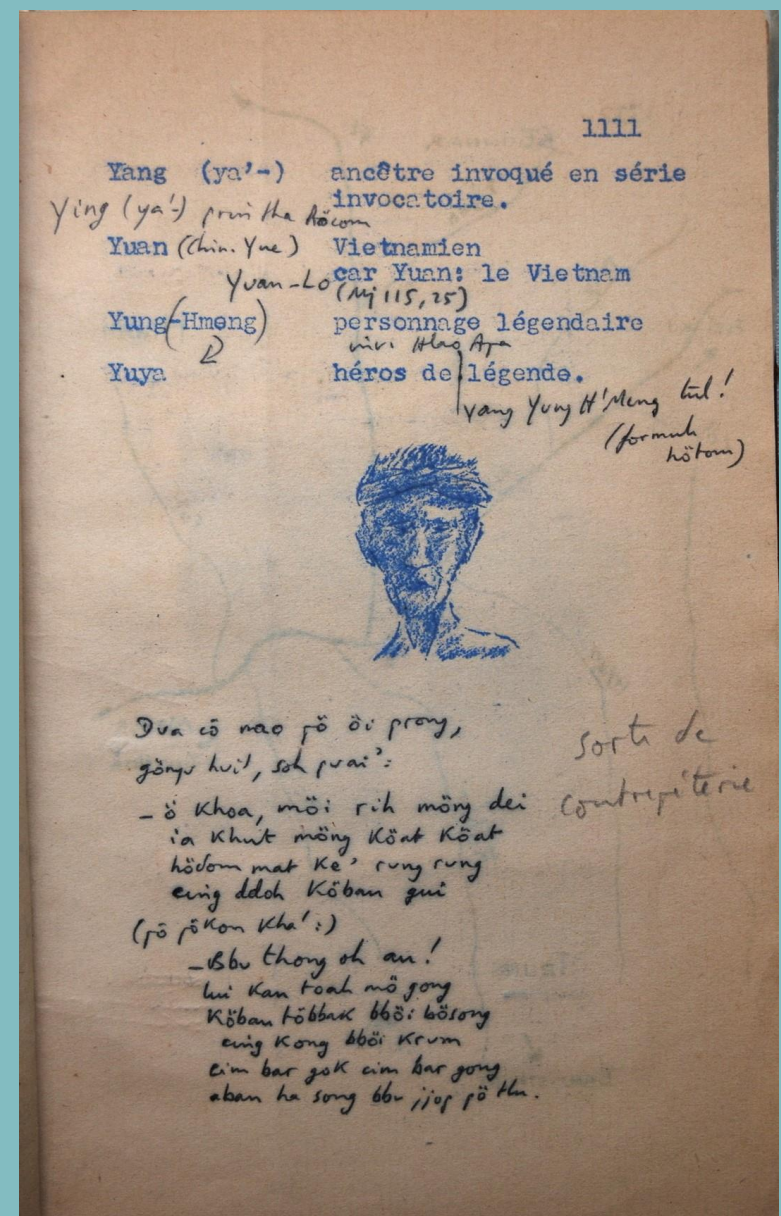 1111
Yang (ya'-) ancêtre invoqué en série
invocatoire.
Ying (ya'-)
Yuan (Chin. Yue) Vietnamien
car Yuan: le Vietnam
Yuan-Lo (Mj 115, 25)
Yung(-Hmeng) personnage légendaire
Yuya héros de légende.
yang Yung H'Meng tŭl!
(formule
hötom)
Dua cō nao pō öi prong,
sorte de
contrepéterie
- ö Khoa, möi rih möng dei
ia Khut möng Köat Köat
hödom mat Ke' rung rung
cing ddoh Köban gui
(pö pökon Kha':)
- Bbu thong oh au!
lui Kan toah mö gong
Köban többak bböi bösong
cing Kong bböi Krum
cim bar gok cim bar gong
aban ha song bbu jjop pö thu.